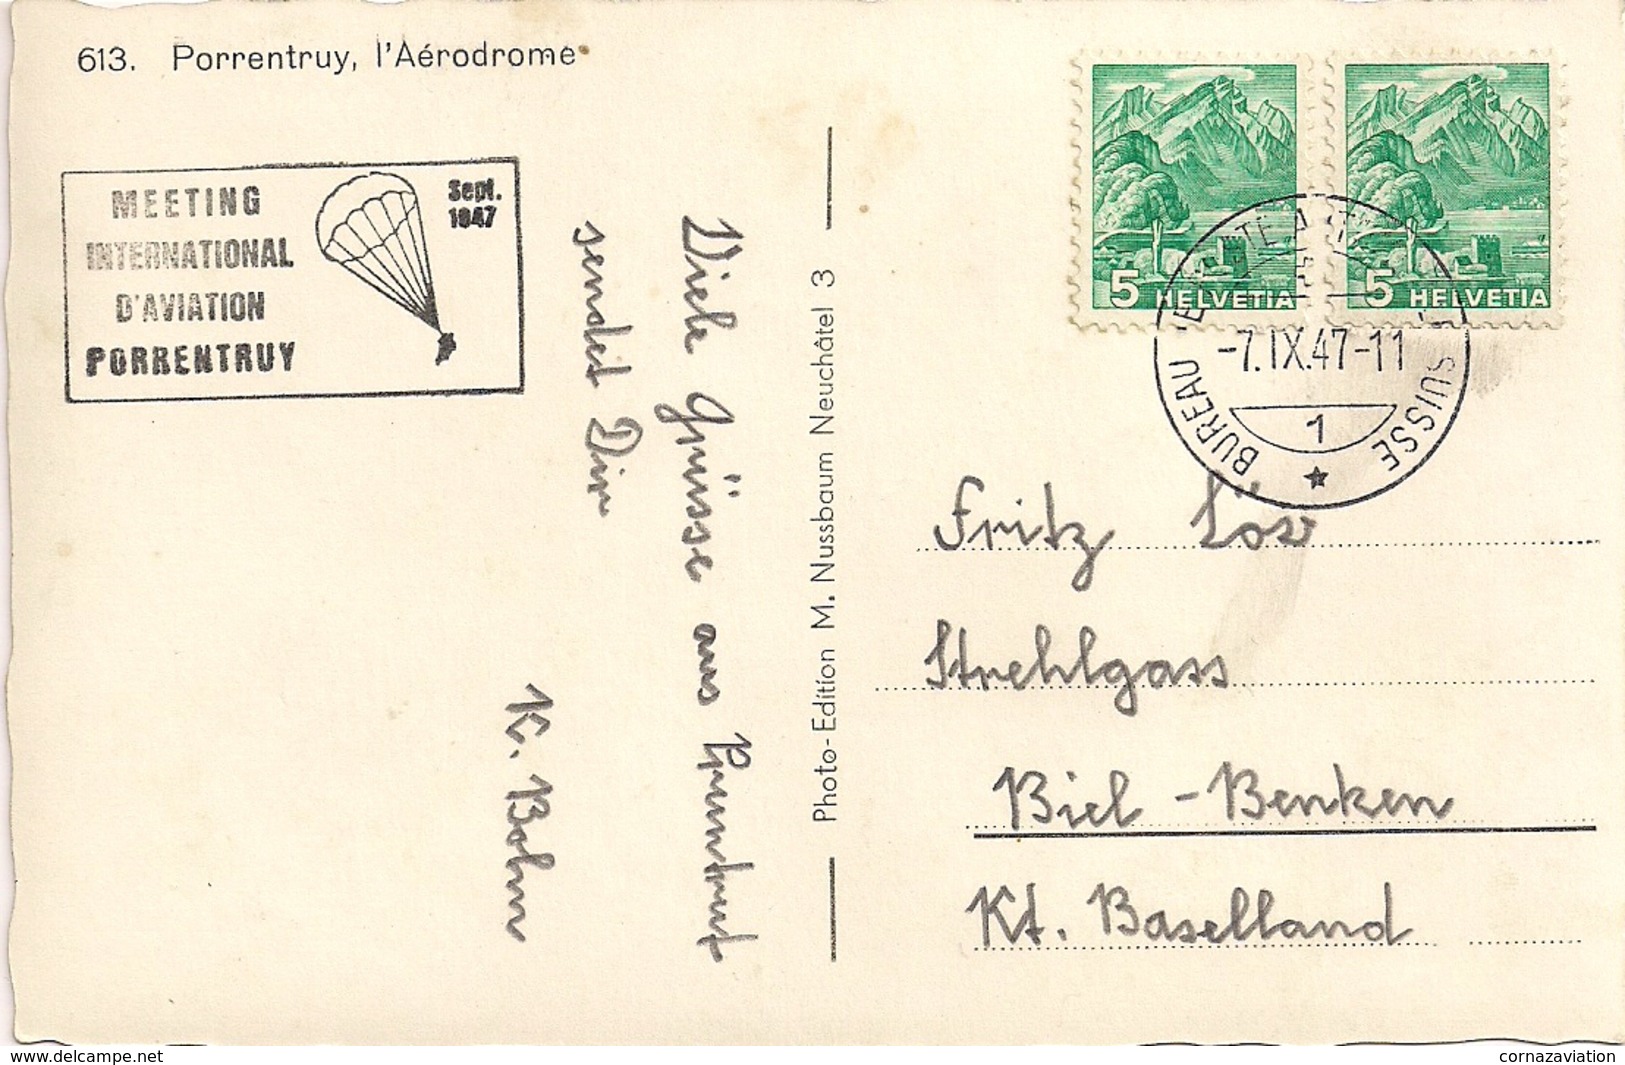 613. Porrentruy, l'Aérodrome
MEETING
INTERNATIONAL
D'AVIATION
PORRENTRUY
Sept.
1947
Viele Grüsse aus Pruntrut
sendet Dir
K. Bohn
Photo-Edition M. Nussbaum Neuchâtel 3
5 HELVETIA
5 HELVETIA
BUREAU
SUISSE
-7.IX.47-11
1
Fritz Löw
Strehlgass
Biel-Benken
Kt. Baselland
www.delcampe.net
cornazaviation